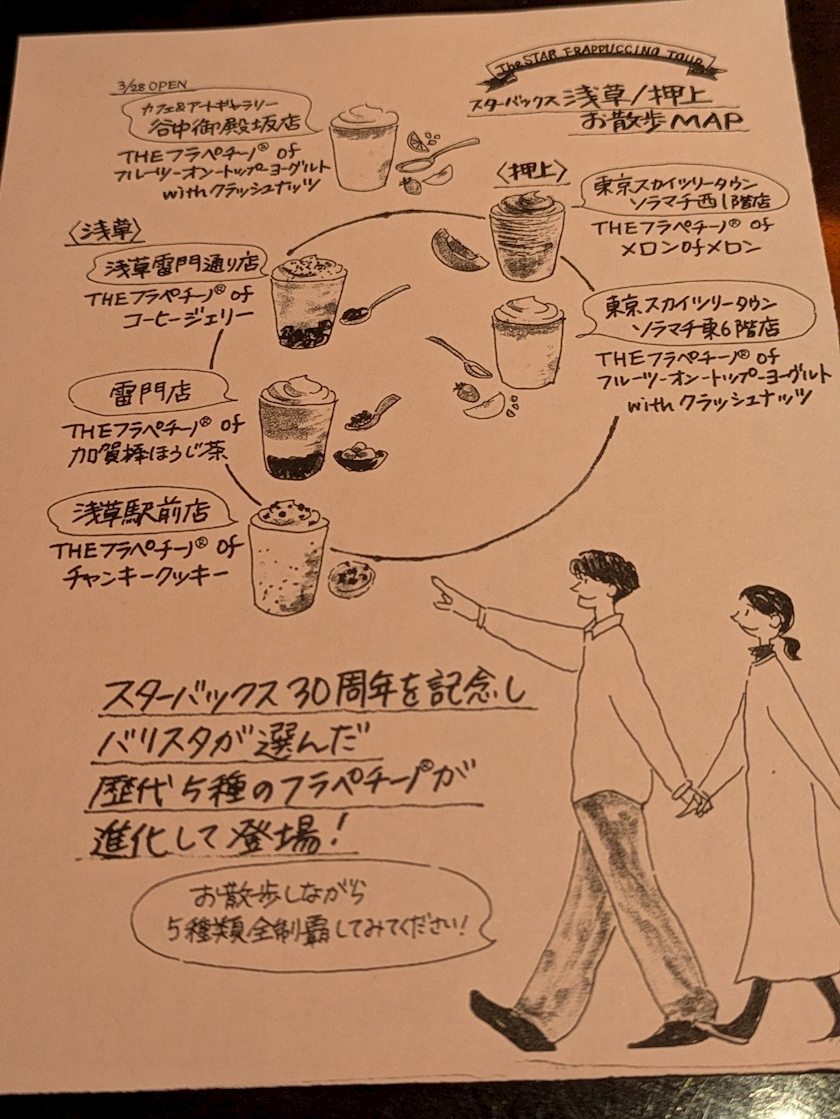 The STAR FRAPPUCCINO TOUR
スターバックス 浅草/押上
お散歩MAP
3/28 OPEN
カフェ&アートギャラリー
谷中御殿坂店
THEフラペチーノ® of
フルーツ-オン-トップ-ヨーグルト
with クラッシュナッツ
〈押上〉
東京スカイツリータウン
ソラマチ西1階店
THEフラペチーノ® of
メロンofメロン
東京スカイツリータウン
ソラマチ東6階店
THEフラペチーノ® of
フルーツ-オン-トップ-ヨーグルト
with クラッシュナッツ
〈浅草〉
浅草雷門通り店
THEフラペチーノ® of
コーヒージェリー
雷門店
THEフラペチーノ® of
加賀棒ほうじ茶
浅草駅前店
THEフラペチーノ® of
チャンキークッキー
スターバックス30周年を記念し
バリスタが選んだ
歴代5種のフラペチーノ®が
進化して登場!
お散歩しながら
5種類全制覇してみてください!